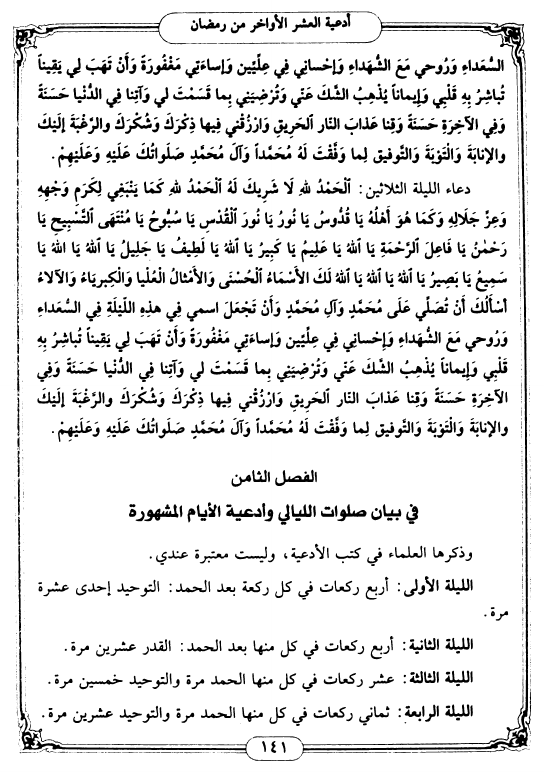 أدعية العشر الأواخر من رمضان
السُّعَداءِ وَرُوحي مَعَ الشُّهَداءِ وَإحْساني فِي عِلِّيّين وَإساءَتِي مَغْفُورَةً وَأَنْ تَهَبَ لِي يَقِيناً
تُباشِرُ بِهِ قَلْبِي وَإيماناً يُذْهِبُ الشَّكَ عَنِّي وَتُرْضِيَنِي بِما قَسَمْتَ لي وَآتِنا فِي الدُّنْيا حَسَنَةً
وَفِي الآخِرَةِ حَسَنَةً وَقِنا عَذابَ النَّارِ الْحَرِيقِ وَارْزُقْنِي فِيها ذِكْرَكَ وَشُكْرَكَ والرَّغْبَةَ إلَيْكَ
والإنابَةَ وَالتَّوْبَةَ وَالتَّوفيق لِما وَفَّقْتَ لَهُ مُحَمَّداً وَآلَ مُحَمَّدٍ صَلَواتُكَ عَلَيْهِ وَعَلَيْهِمْ.
دعاء الليلة الثلاثين: الْحَمْدُ للهِ لَا شَرِيكَ لَهُ الْحَمْدُ للهِ كَمَا يَنْبَغِي لِكَرَمِ وَجْهِهِ
وَعِزِّ جَلالِهِ وَكَمَا هُوَ أَهْلُهُ يَا قُدُّوسُ يَا نُورُ يَا نُورَ الْقُدْسِ يَا سُبُّوحُ يَا مُنْتَهَى التَّسْبِيحِ يَا
رَحْمٰنُ يَا فَاعِلَ الرَّحْمَةِ يَا اللهُ يَا عَلِيمُ يَا كَبِيرُ يَا اللهُ يَا لَطِيفُ يَا جَلِيلُ يَا اللهُ يَا اللهُ يَا
سَمِيعُ يَا بَصِيرُ يَا اللهُ يَا اللهُ يَا اللهُ لَكَ الأَسْمَاءُ الْحُسْنَى وَالأَمْثالُ الْعُلْيا وَالْكِبرِياءُ وَالآلاءُ
أسْأَلُكَ أَنْ تُصَلِّيَ عَلَى مُحَمَّدٍ وَآلِ مُحَمَّدٍ وَأَنْ تَجْعَلَ اسمي فِي هذِهِ اللَّيْلَةِ فِي السُّعَداءِ
وَرُوحي مَعَ الشُّهَداءِ وَإحْساني فِي عِلِّيّين وَإساءَتِي مَغْفُورَةً وَأَنْ تَهَبَ لِي يَقِيناً تُباشِرُ بِهِ
قَلْبِي وَإيماناً يُذْهِبُ الشَّكَ عَنِّي وَتُرْضِيَنِي بِما قَسَمْتَ لي وَآتِنا فِي الدُّنْيا حَسَنَةً وَفِي
الآخِرَةِ حَسَنَةً وَقِنا عَذابَ النَّارِ الْحَرِيقِ وَارْزُقْنِي فِيها ذِكْرَكَ وَشُكْرَكَ والرَّغْبَةَ إلَيْكَ
والإنابَةَ وَالتَّوْبَةَ وَالتَّوفيق لِما وَفَّقْتَ لَهُ مُحَمَّداً وَآلَ مُحَمَّدٍ صَلَواتُكَ عَلَيْهِ وَعَلَيْهِمْ.
الفصل الثامن
في بيان صلوات الليالي وأدعية الأيام المشهورة
وذكرها العلماء في كتب الأدعية، وليست معتبرة عندي.
الليلة الأولى: أربع ركعات في كل ركعة بعد الحمد: التوحيد إحدى عشرة
مرة.
الليلة الثانية: أربع ركعات في كل منها بعد الحمد: القدر عشرين مرة.
الليلة الثالثة: عشر ركعات في كل منها الحمد مرة والتوحيد خمسين مرة.
الليلة الرابعة: ثماني ركعات في كل منها الحمد مرة والتوحيد عشرين مرة.
١٤١